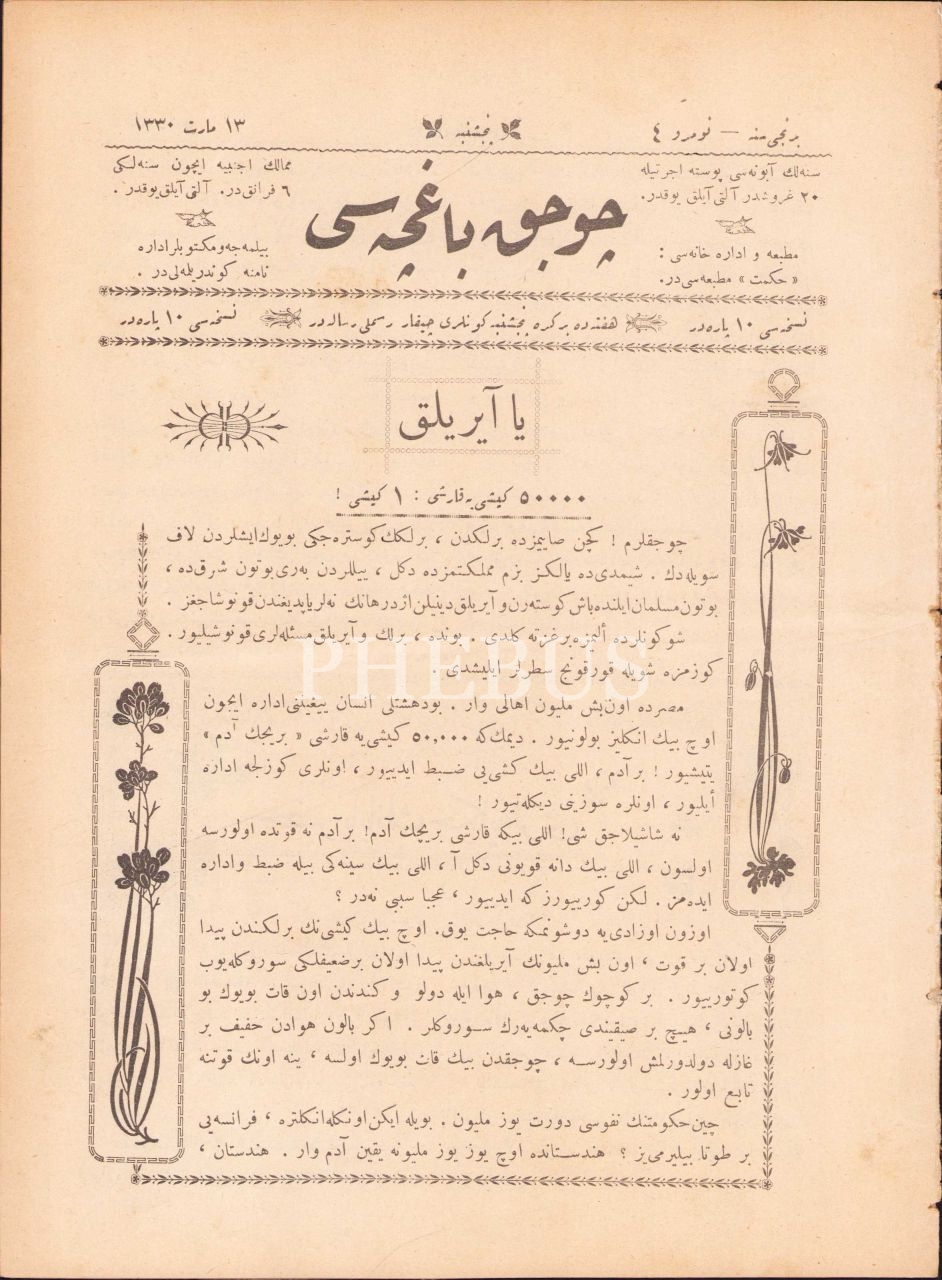 برنجی سنه — نومرو ٤
پنجشنبه
١٣ مارت ١٣٣٠
سنه‌لك آبونه‌سی پوسته اجرتیله
٢٠ غروشدر آلتی آیلق یوقدر.
مطبعه و اداره خانه‌سی :
« حكمت » مطبعه‌سی در.
چوجق باغچه‌سی
ممالك اجنبیه ایچون سنه‌لكی
٦ فرانق در. آلتی آیلق یوقدر.
بیلمه‌جه و مكتوبلر اداره
نامنه كوندریله‌لی در .
نسخه‌سی ١٠ پاره‌در
هفته‌ده بر كره پنجشنبه كونلری چیقار رسملی رساله‌در
نسخه‌سی ١٠ پاره‌در
یا آیریلق
٥٠٠٠٠ كیشی‌یه قارشی : ١ كیشی !
چوجقلرم ! كچن صاییمزده برلكدن ، برلكك كوستره‌جكی بویوك ایشلردن لاف
سویله‌دك . شیمدی‌ده یالكز بزم مملكتمزده دكل ، ییللردن به‌ری بوتون شرق‌ده ،
بوتون مسلمان ایلنده باش كوسته‌رن و آیریلق دینیلن اژدرهانك نه‌لر یاپدیغندن قونوشاجغز .
شو كونلرده ألیمزه بر غزته كلدی . بونده ، برلك و آیریلق مسئله‌لری قونوشیلیور .
كوزمزه شویله قورقونج سطرلر ایلیشدی .
مصرده اون‌بش ملیون اهالی وار . بودهشتلی انسان ییغینلنی اداره ایچون
اوچ بیك انكلیز بولونیور . دیمك‌كه ٥٠,٠٠٠ كیشی‌یه قارشی « بریجك آدم »
یتیشیور ! بر آدم ، اللی بیك كشی‌یی ضبط ایدییور ، اونلری كوزلجه اداره
أیلیور ، اونلره سوزینی دیكله‌تیور !
نه شاشیلاجق شی! اللی بیكه قارشی بریجك آدم! بر آدم نه قوتده اولورسه
اولسون ، اللی بیك دانه قویونی دكل آ ، اللی بیك سینه‌كی بیله ضبط واداره
ایده‌مز . لكن كورییورز كه ایدییور ، عجبا سببی نه‌در ؟
اوزون اوزادی‌یه دوشونمكه حاجت یوق. اوچ بیك كیشی‌نك برلكندن پیدا
اولان بر قوت ، اون بش ملیونك آیریلغندن پیدا اولان برضعیفلكی سوروكله‌یوب
كوتورییور . بر كوچوك چوجق ، هوا ایله دولو و كندندن اون قات بویوك بو
بالونی ، هیچ بر صیقیندی چكمه‌یه‌رك سوروكلر . اكر بالون هوادن خفیف بر
غازله دولدورلمش اولورسه ، چوجقدن بیك قات بویوك اولسه ، ینه اونك قوتنه
تابع اولور .
چین حكومتنك نفوسی دورت یوز ملیون . بویله ایكن اونكله انكلتره ، فرانسه‌یی
بر طوتا بیلیرمی‌یز ؟ هندستانده اوچ یوز یوز ملیونه یقین آدم وار . هندستان ،